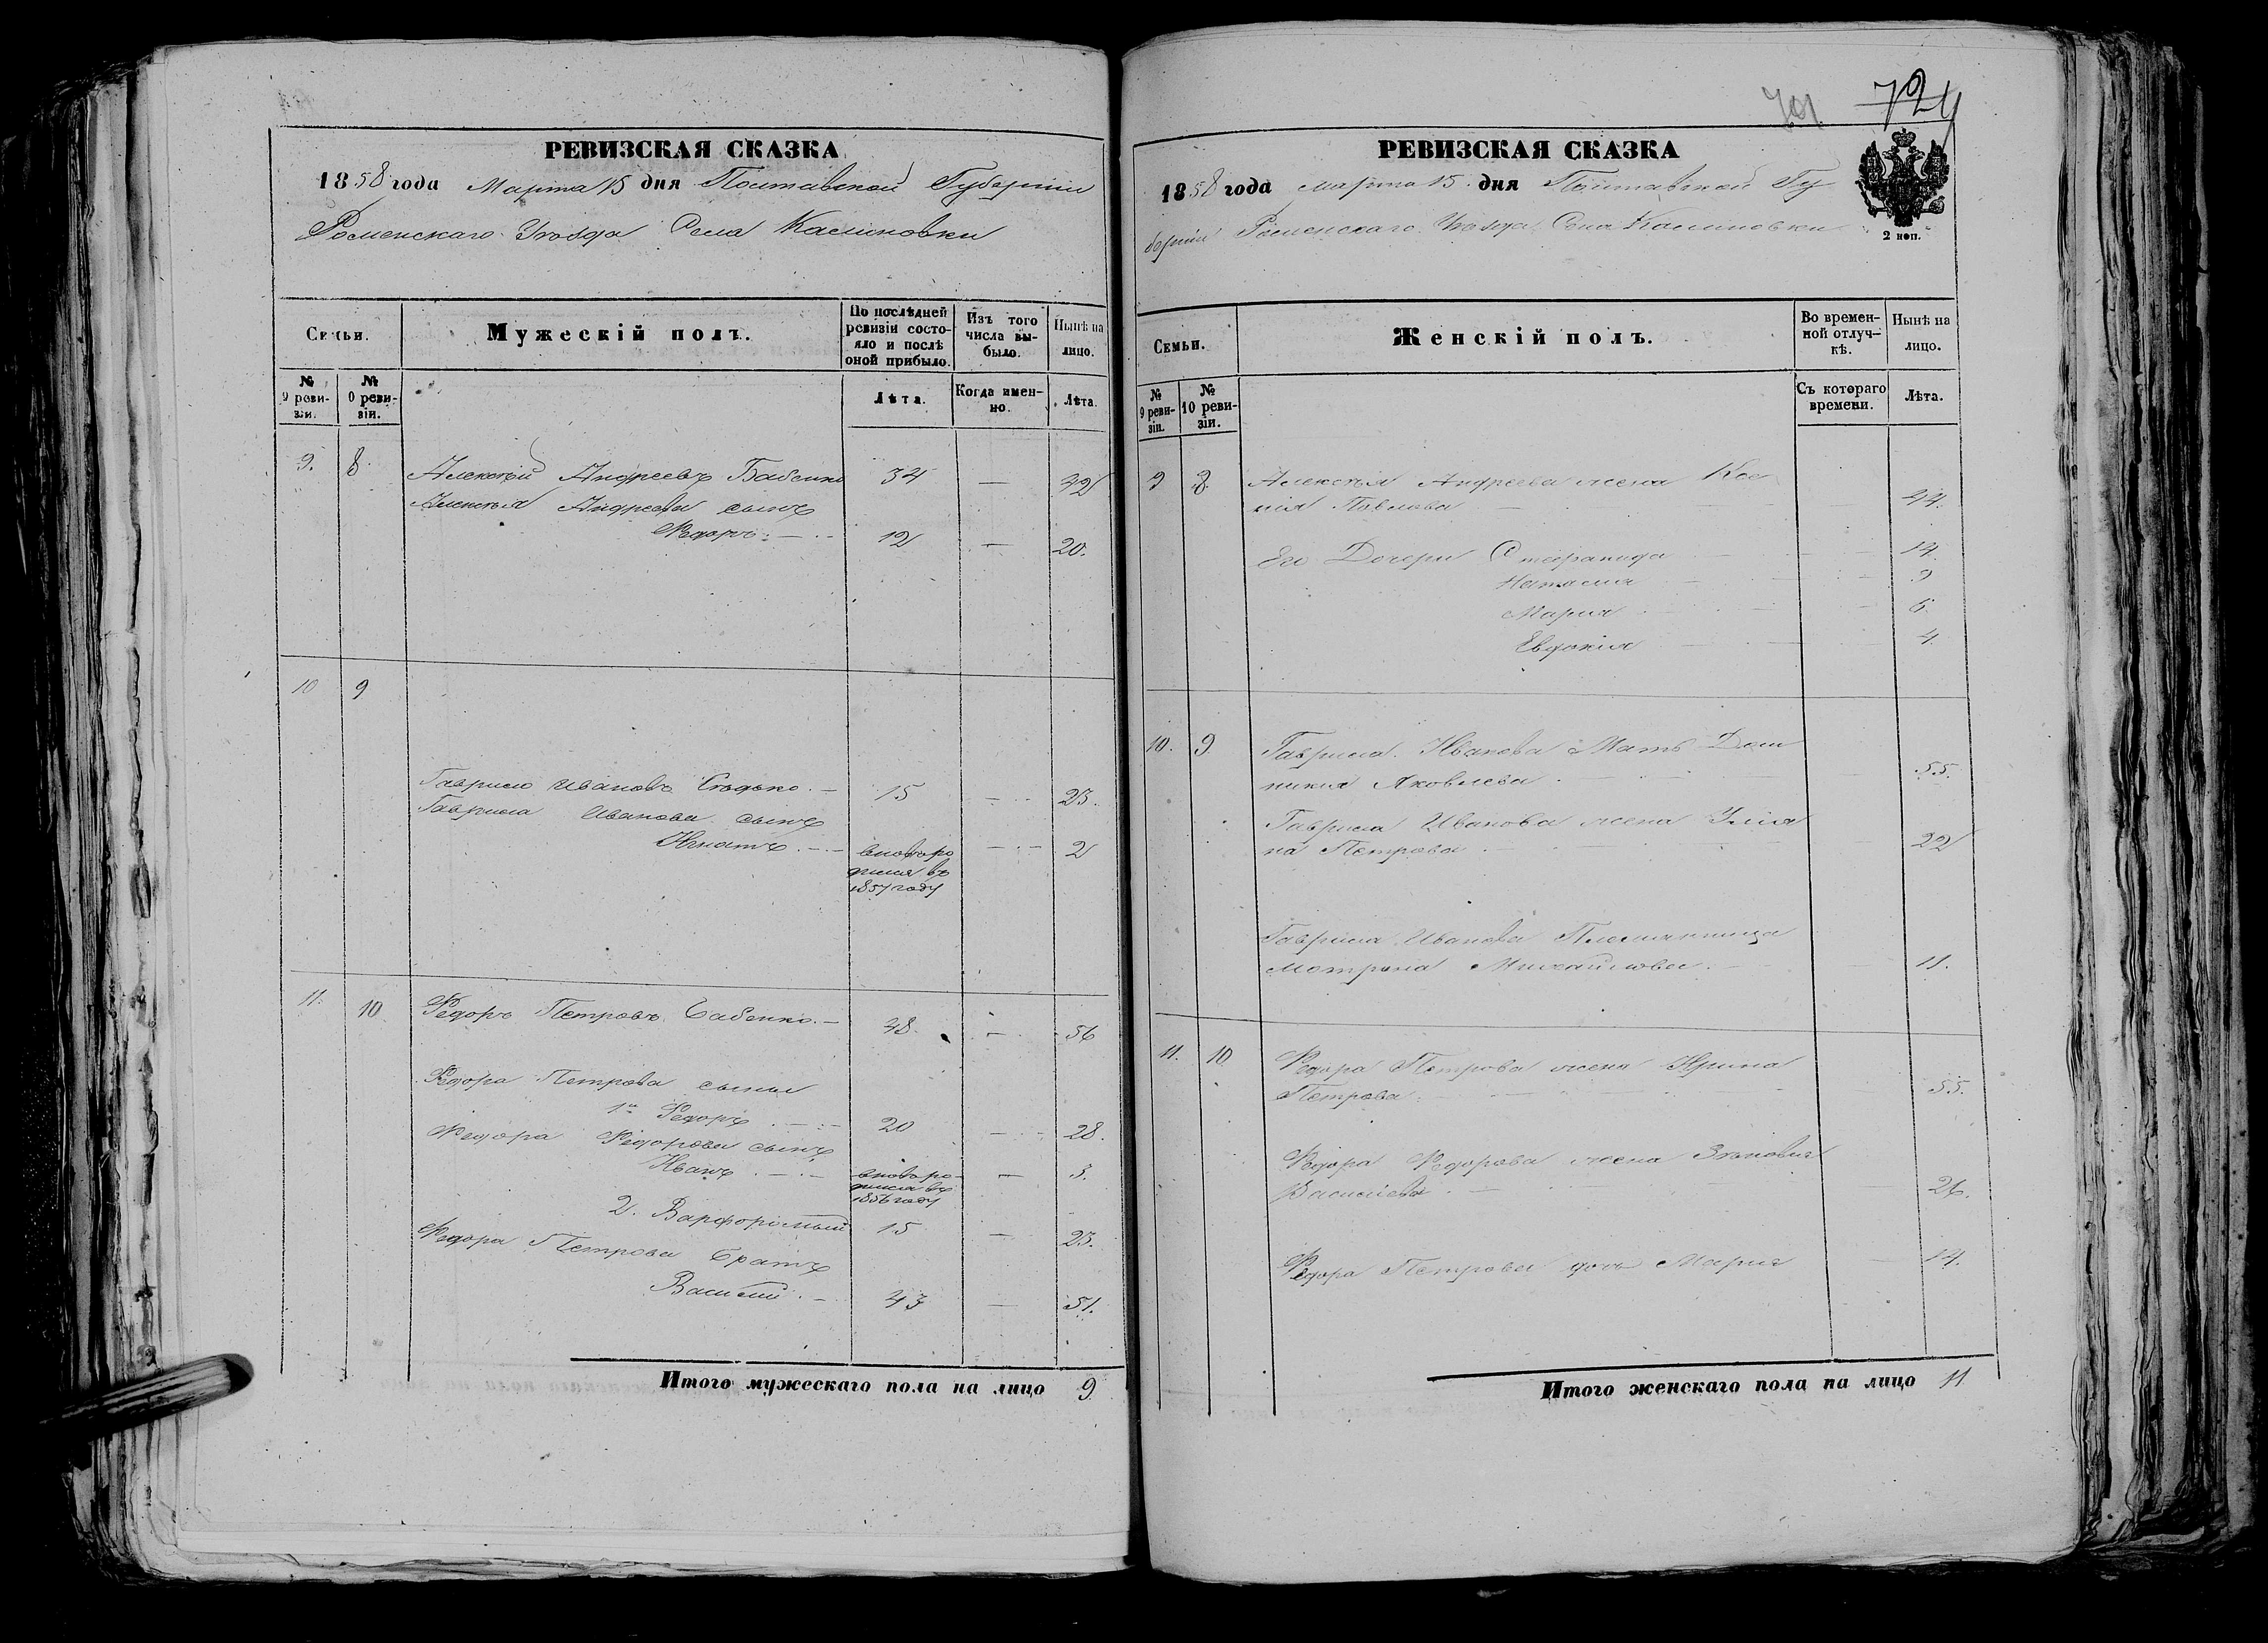 РЕВИЗСКАЯ СКАЗКА
1858 года Марта 15 дня Полтавской Губернии
Роменскаго Уезда Села Калиновки
Семьи.
Мужескій полъ.
По послѣдней ревизіи состояло и послѣ оной прибыло.
Изъ того числа выбыло.
Нынѣ на лицо.
№ 9 ревизіи.
№ 0 ревизіи.
Лѣта.
Когда именно.
Лѣта.
9. 8. Алексѣй Андреевъ Бабенко 34 — 42
Алексѣя Андреева сынъ
Федоръ — 12 — 20.
10 9
Гаврило Ивановъ — 15 — 23.
Гаврила Иванова сынъ
Игнатъ — вновь ро — 2
дился въ
1857 году
11. 10 Федоръ Петровъ Бабенко — 48 — 56
Федора Петрова сыны
1й Федоръ — 20 — 28.
Федора Федорова сынъ
Иванъ — вновь ро- — 3.
дился въ
1856 году
2. Варфоломей 15 — 23.
Федора Петрова братъ
Василий — 43 — 51.
Итого мужескаго пола на лицо 9
701 724
РЕВИЗСКАЯ СКАЗКА
1858 года марта 15 дня Полтавской Гу
берніи Роменскаго Уезда Села Калиновки
2 коп.
Семьи.
Женскій полъ.
Во временной отлучкѣ.
Нынѣ на лицо.
№ 9 ревизіи.
№ 10 ревизіи.
Съ котораго времени.
Лѣта.
9 8. Алексѣя Андреева жена Ксе
нія Павлова — 44.
Его Дочери Степанида — 14.
Наталия — 9
Мария — 6.
Евдокія — 4.
10. 9 Гаврила Иванова Мать Дом
никия Яковлева — 55.
Гаврила Иванова жена Улия
на Петрова — 22
Гаврила Иванова Племянница
Мотрона Михайлова — 11.
11. 10 Федора Петрова жена Ирина
Петрова — 55.
Федора Федорова жена Зѣновия
Васильева — 26.
Федора Петрова дочь Мария — 14.
Итого женскаго пола на лицо 11